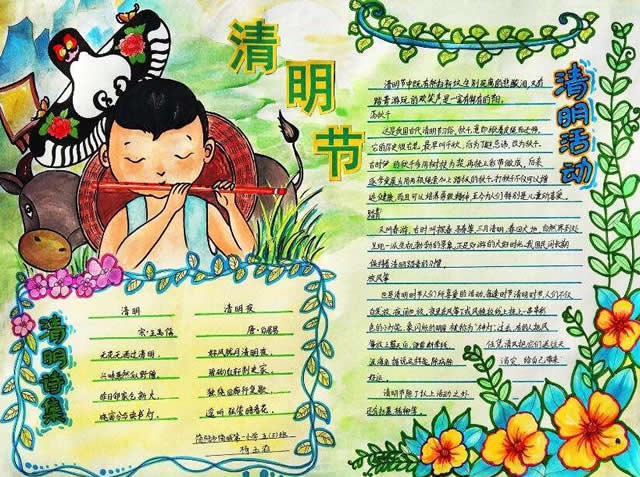 清明节
清明诗集
清明
宋·王禹偁
无花无酒过清明,
兴味萧然似野僧,
昨日邻家乞新火,
晓窗分与读书灯。
清明夜
唐·白居易
好风胧月清明夜,
碧砌红轩刺史家。
独绕回廊行复歇,
遥听弦管暗看花。
清明活动
清明节中既有祭扫新坟生别死离的悲酸泪,又有
踏青游玩的欢笑声,是一富有特色的节日。
荡秋千
这是我国古代清明节习俗,秋千,意即揪着皮绳而迁移。
它的历史很古老,最早叫千秋,后为了避忌讳,改为秋千。
古时的秋千多用树枝为架,再拴上彩带做成,后来
逐步发展为用两根绳索加上踏板的秋千,打秋千不仅可以增
进健康,而且可以培养勇敢精神,至今为人们特别是儿童所喜爱。
踏青
又叫春游,古时叫探春、寻春等,三月清明,春回大地,自然界到处
呈现一派生机勃勃的景象,正是郊游的大好时光,我国民间长期
保持着清明踏青的习惯。
放风筝
也是清明时节人们所喜爱的活动,每逢清明时节,人们不仅
白天放,夜间也放,夜里在风筝下或风稳拉线上挂上一串串彩
色的小灯笼,象闪烁的明星,被称为"神灯",过去,有的人把风
清明节除了以上活动之外